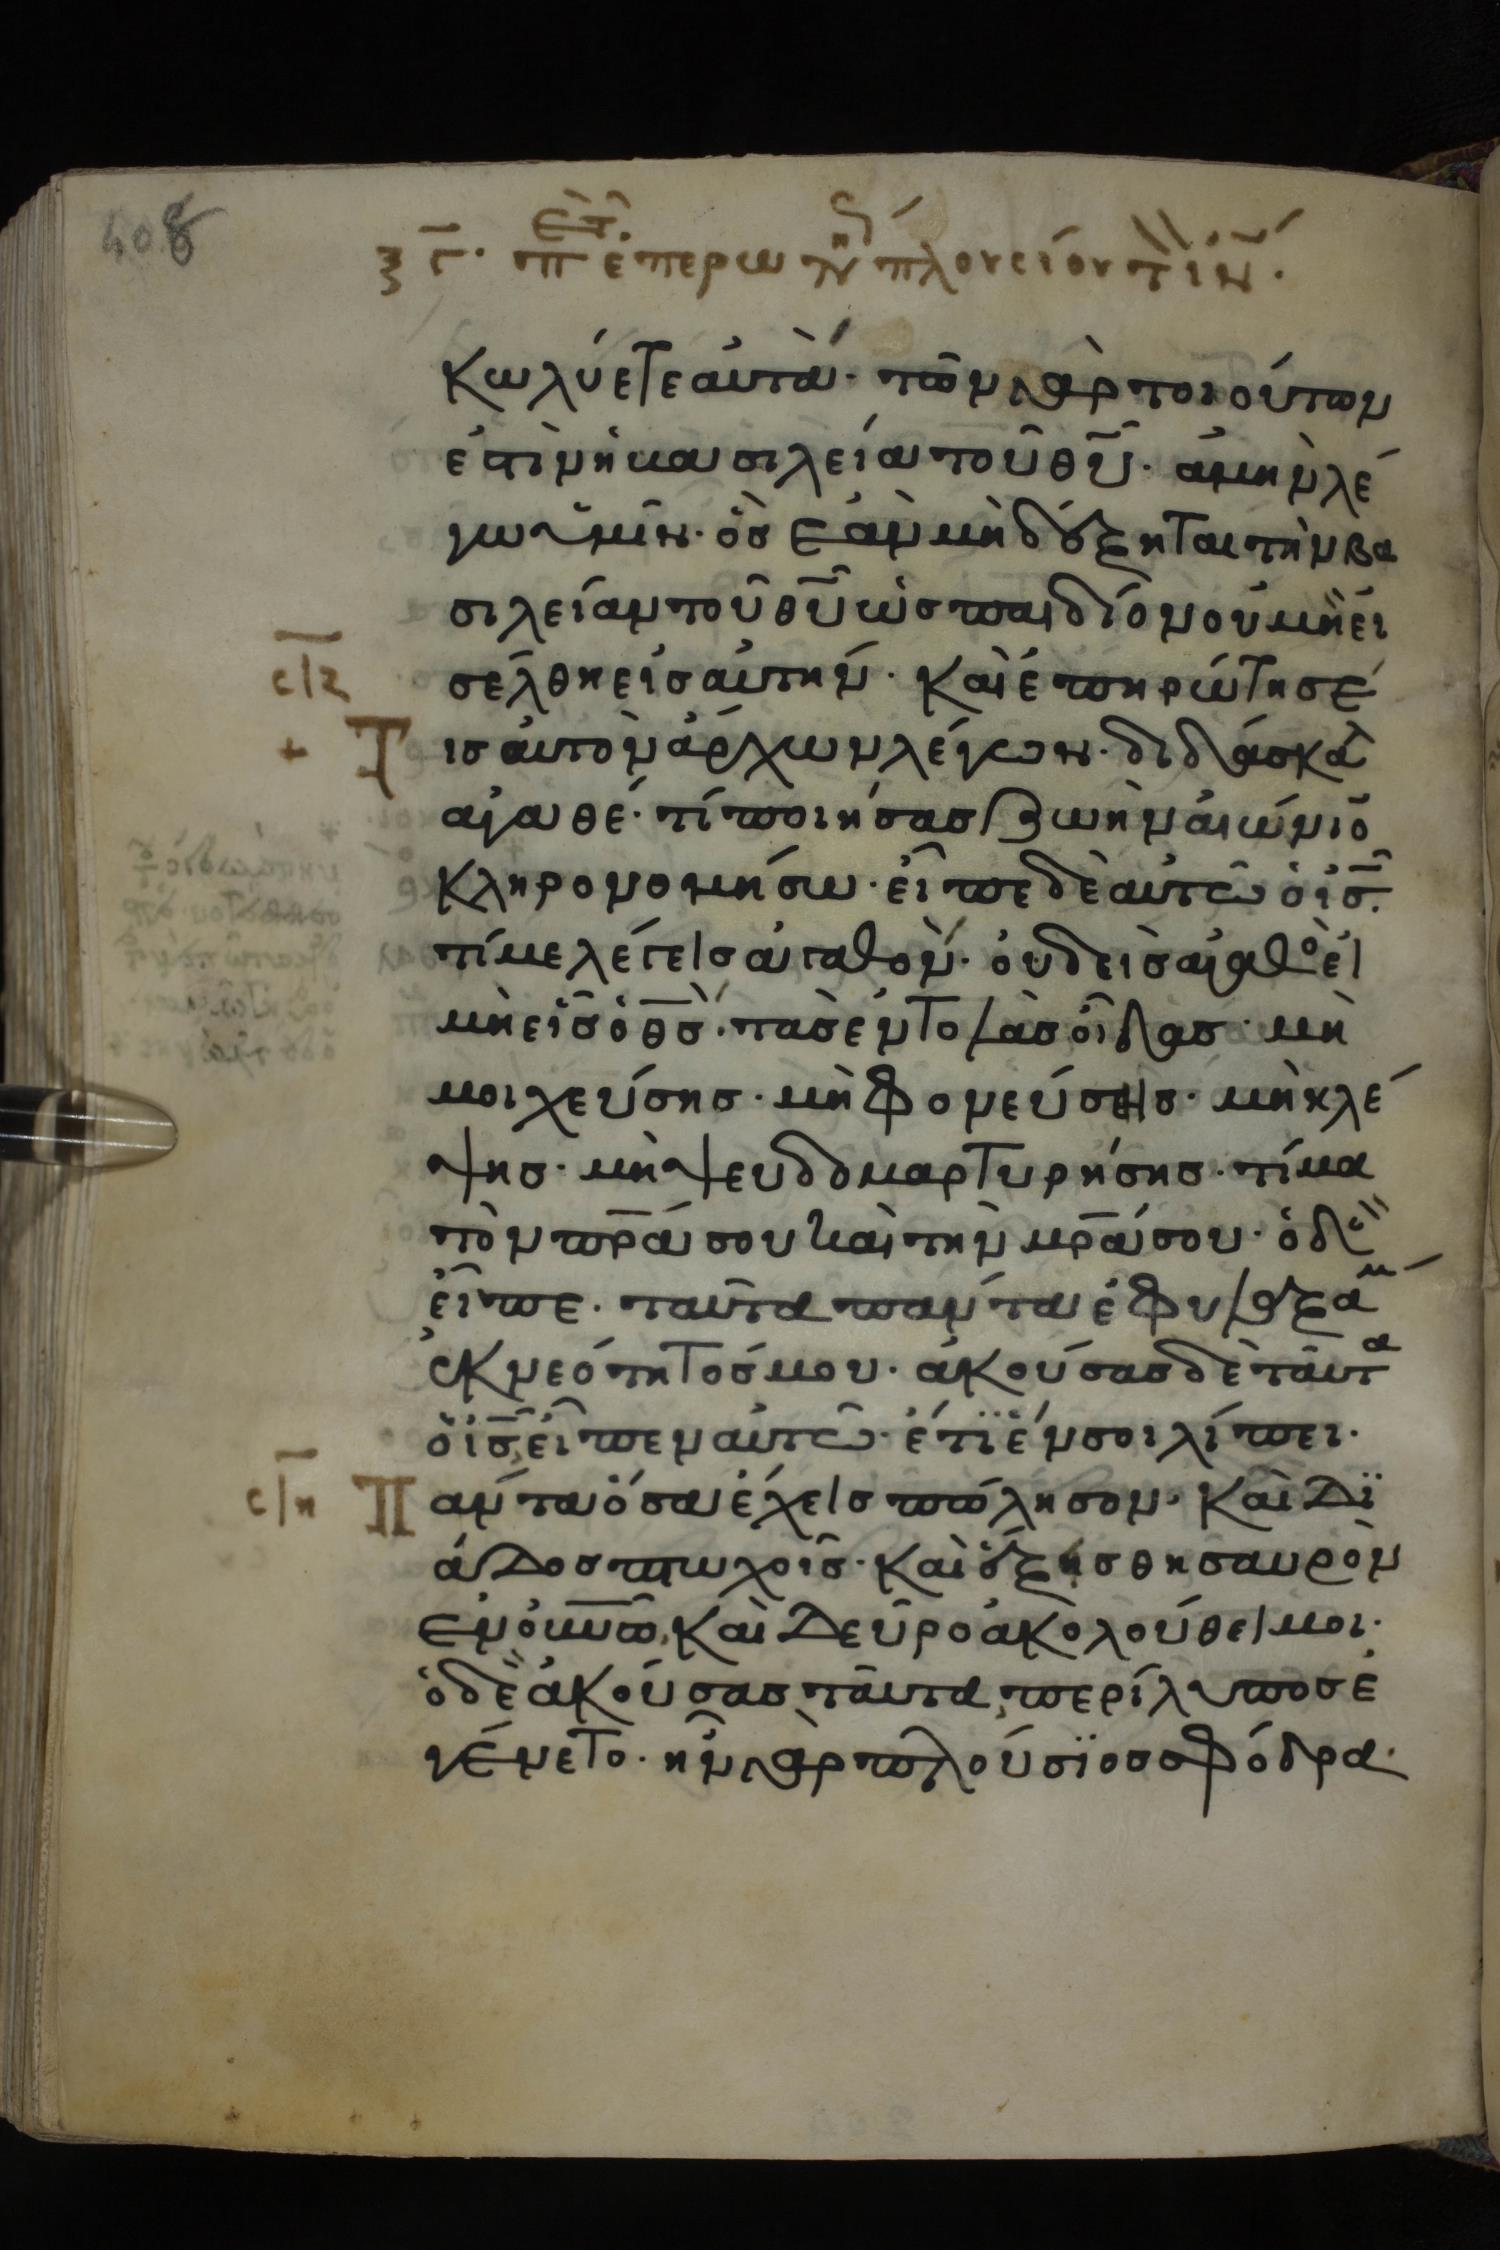 408
κωλύετε αὐτά· τῶν γὰρ τοιούτων
ἐστὶν ἡ βασιλεία τοῦ θῦ· ἀμὴν λέ
γω ὑμῖν· ὃς ἐὰν μὴ δέξηται τὴν βα
σιλείαν τοῦ θῦ ὡς παιδίον οὐ μὴ εἰ
σέλθη εἰς αὐτήν· καὶ ἐπηρώτησέ
σιζ
+ Τ ις αὐτὸν ἄρχων λέγων· διδάσκαλ
ἀγαθέ· τί ποιήσας ζωὴν αἰώνιο
κληρονομήσω· εἶπε δὲ αὐτῶ ὁ ις·
τί με λέγεις ἀγαθόν· οὐδεὶς ἀγαθὸ εἰ
μὴ εἷς ὁ θς· τὰς ἐντολὰς οἶδας· μὴ
μοιχεύσης· μὴ φονεύσης· μὴ κλέ
ψης· μὴ ψευδομαρτυρήσης· τίμα
τὸν πρα σου καὶ τὴν μρα σου· ὁ δὲ
εἶπε· ταῦτα πάντα ἐφυλαξάμ
ἐκ νεότητός μου· ἀκούσας δὲ ταῦτα
ὁ ις εἶπεν αὐτῶ· ἔτι ἕν σοι λίπει·
σιη
Π άντα ὅσα ἔχεις πώλησον· καὶ δι
άδος πτωχοῖς· καὶ ἕξεις θησαυρὸν
ἐν οὐνῶ, καὶ δεῦρο ἀκολούθει μοι·
ὁ δὲ ἀκούσας ταῦτα, περίλυπος ἐ
γένετο· ἦν γὰρ πλούσιος σφόδρα·